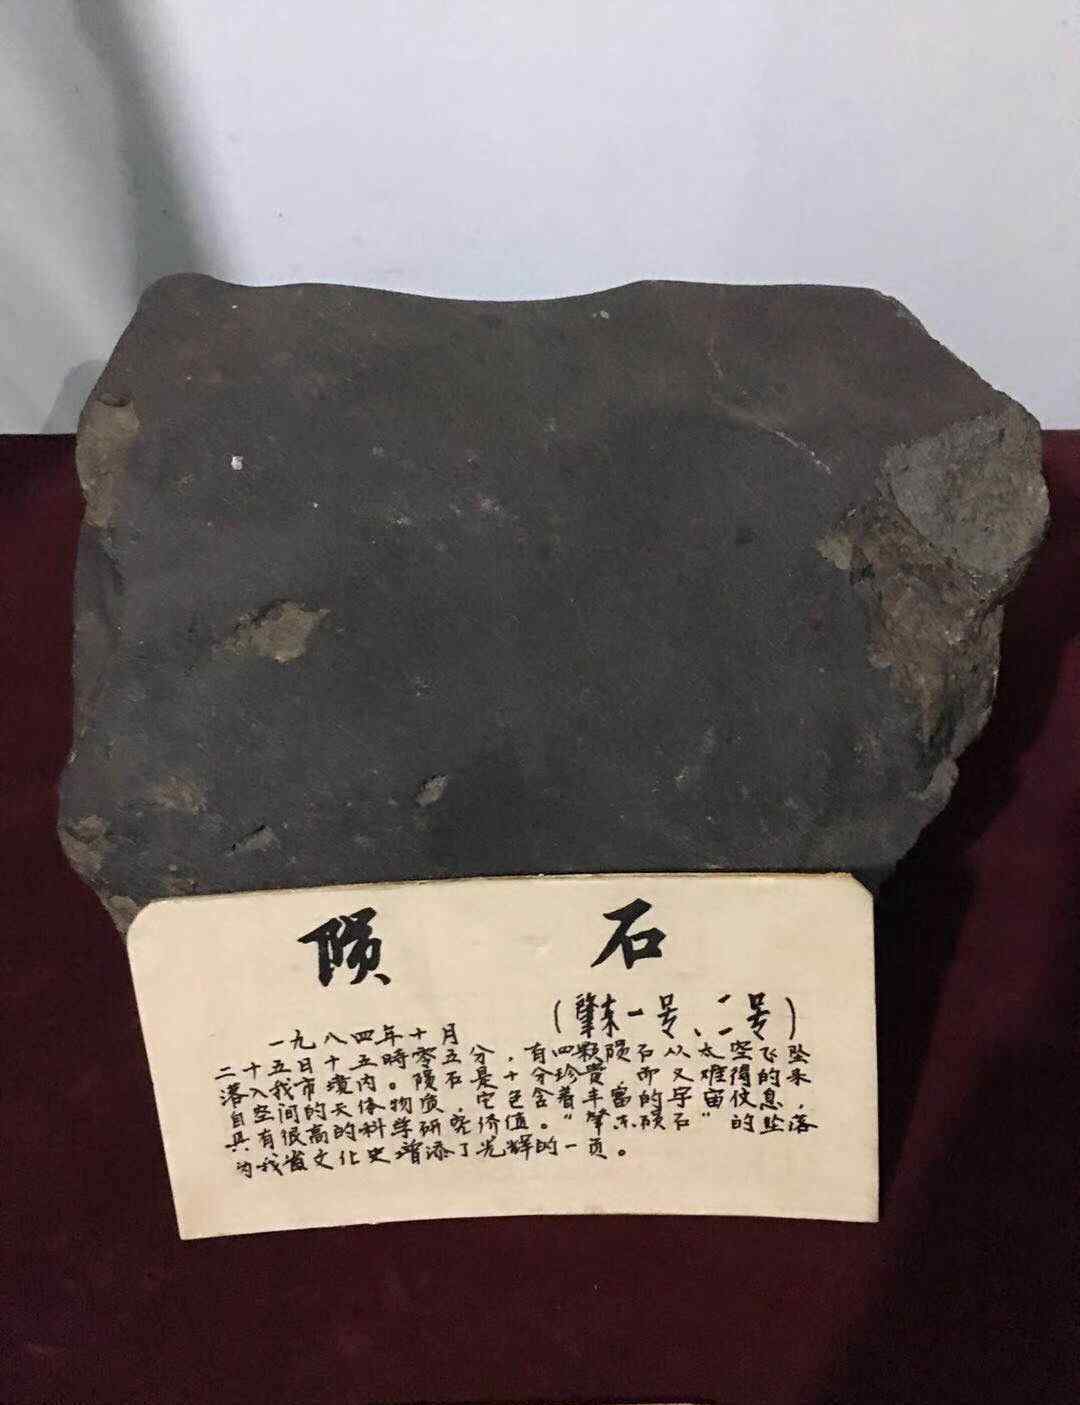 陨石
（肇东一号、二号）
一九八四年十月
二十五日十五時零五分，有四颗陨石从太空飞坠
落入我市境内。陨石是十分珍贵，而又难得的来
自空间的天体物质，它包含着丰富的宇宙信息，
具有很高的科学研究价值。“肇东陨石”的坠落
为我省文化史增添了光辉的一页。